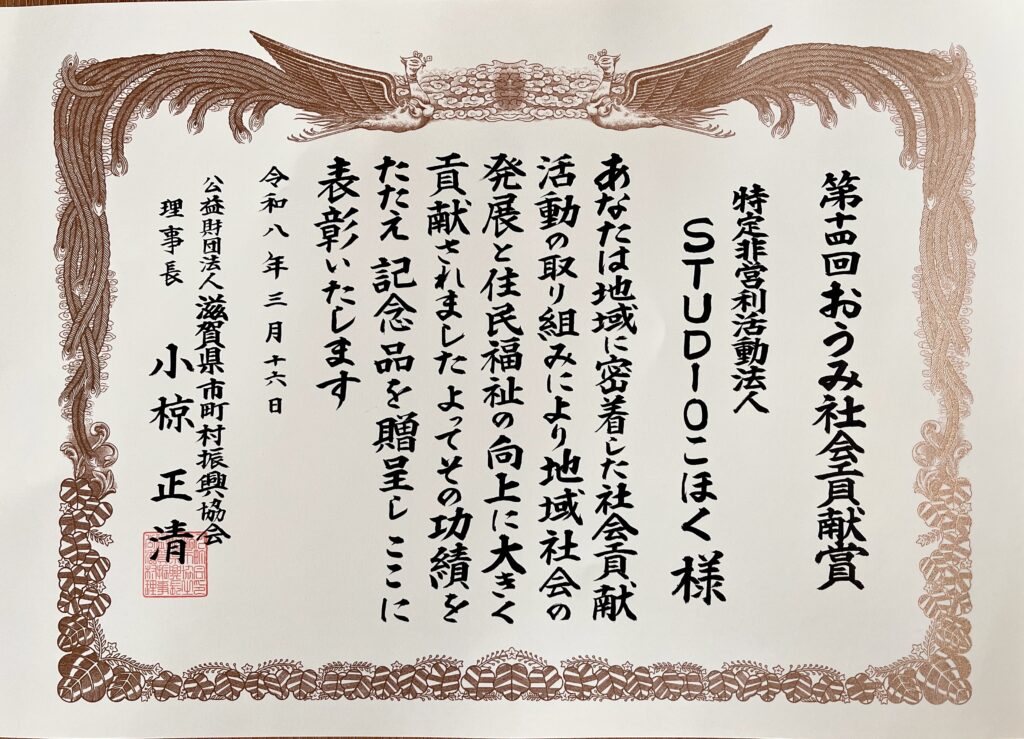 第十四回おうみ社会貢献賞
特定非営利活動法人
STUDIOこほく 様
あなたは地域に密着した社会貢献
活動の取り組みにより地域社会の
発展と住民福祉の向上に大きく
貢献されましたよってその功績を
たたえ 記念品を贈呈し ここに
表彰いたします
令和八年三月十六日
公益財団法人 滋賀県市町村振興協会
理事長 小椋 正清